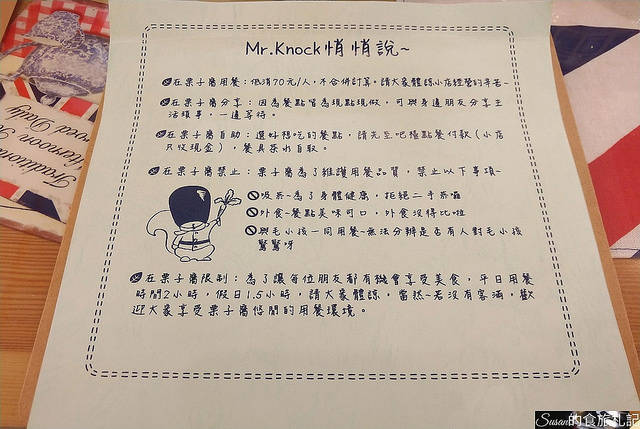 Mr.Knock悄悄說~
在栗子窩用餐：低消70元/人，不合併計算。請大家體諒小店經營的辛苦~
在栗子窩分享：因為餐點皆為現點現做，可與身邊朋友分享生
活瑣事，一邊等待。
在栗子窩自助：選好想吃的餐點，請先至吧檯點餐付款(小店
只收現金)，餐具茶水自取。
在栗子窩禁止：栗子窩為了維護用餐品質，禁止以下事項~
吸菸~為了身體健康，拒絕二手菸囉
外食~餐點美味可口，外食沒得比啦
與毛小孩一同用餐~無法分辨是否有人對毛小孩
驚驚呀
在栗子窩限制：為了讓每位朋友都有機會享受美食，平日用餐
時間2小時，假日1.5小時，請大家體諒，當然~若沒有客滿，歡
迎大家享受栗子窩悠閒的用餐環境。
Traditional
Afternoon
Susan的食旅札記